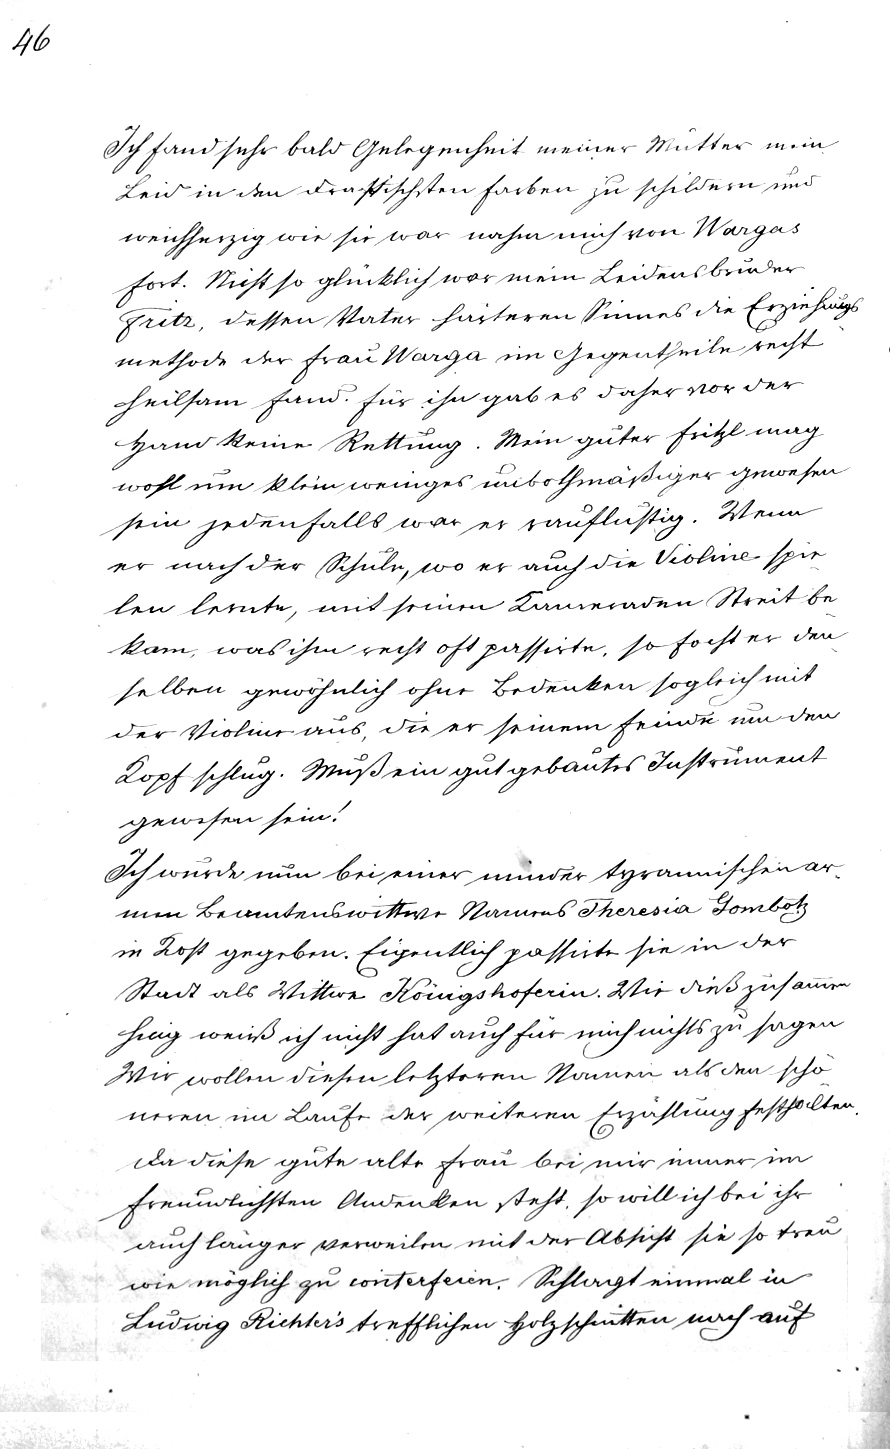 46
Ich fand sehr bald Gelegenheit meiner Mutter mein
Leid in den drastischsten Farben zu schildern und
weichherzig wie sie war nahm mich von Wargas
fort. Nicht so glücklich war mein Leidensbruder
Fritz, dessen Vater härteren Sinnes die Erziehungs
methode der Frau Warga im Gegentheile recht
heilsam fand. Für ihn gab es daher vor der
Hand keine Rettung. Mein guter Fritzl mag
wohl um klein weniges unbothmäßiger gewesen
sein jedenfalls war er rauflustig. Wenn
er nach der Schule, wo er auch die Violine spie
len lernte, mit seinen Kameraden Streit be
kam, was ihm recht oft passirte, so focht er den
selben gewöhnlich ohne Bedenken sogleich mit
der Violine aus, die er seinem Feinde um den
Kopf schlug. Muß ein gut gebautes Instrument
gewesen sein!
Ich wurde nun bei einer minder tyrannischen ar-
men Beamtenswittwe Namens Theresia Gombotz
in Kost gegeben. Eigentlich passirte sie in der
Stadt als Wittwe Königshoferin. Wie dieß zusammen
hing weiß ich nicht hat auch für mich nichts zu sagen
Wir wollen diesen letzteren Namen als den schö
neren im Laufe der weiteren Erzählung festhalten.
Da diese gute alte Frau bei mir immer im
freundlichsten Andenken steht, so will ich bei ihr
auch länger verweilen mit der Absicht sie so treu
wie möglich zu conterfeien. Schlagt einmal in
Ludwig Richter's trefflichen Holzschnitten nach auf